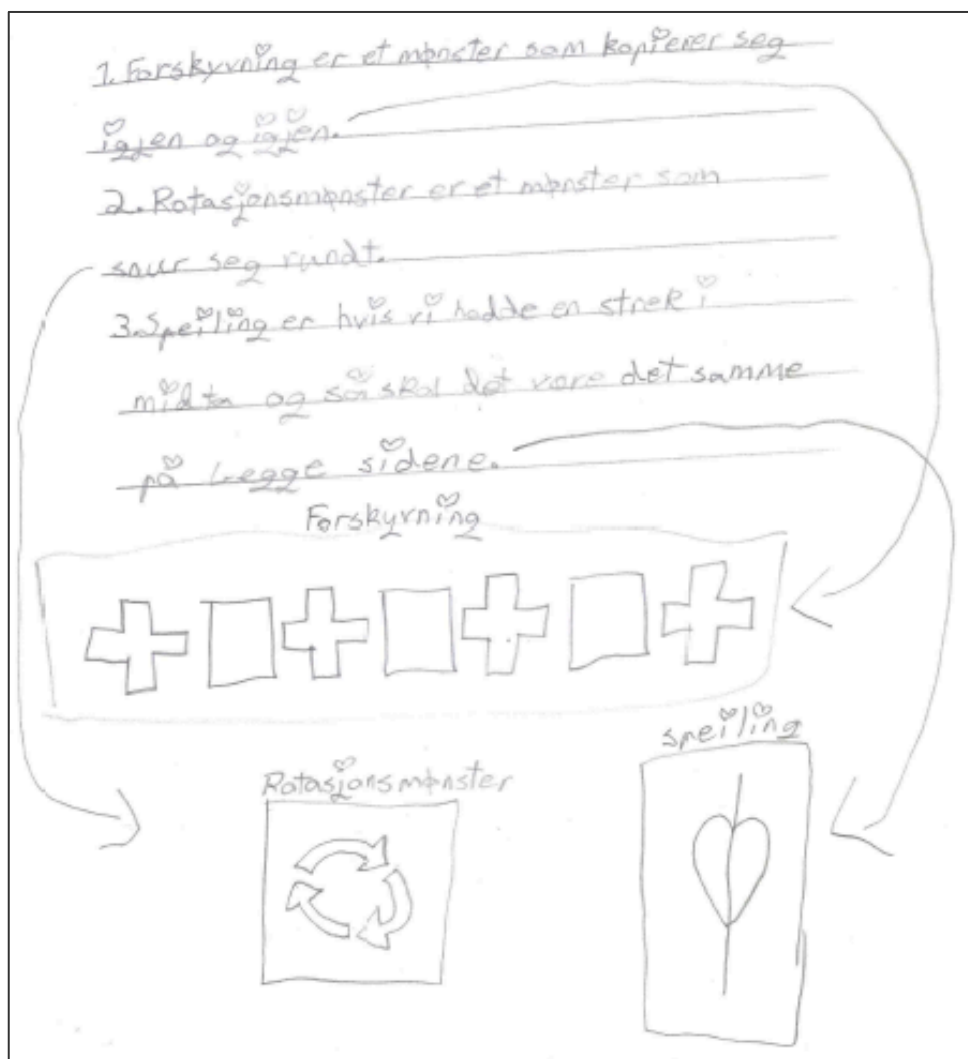 1. Forskyvning er et mønster som kopierer seg
igjen og igjen.
2. Rotasjonsmønster er et mønster som
snur seg rundt.
3. Speiling er hvis vi hadde en strek i
midta og så skal det være det samme
på begge sidene.
Forskyvning
Rotasjonsmønster
speiling